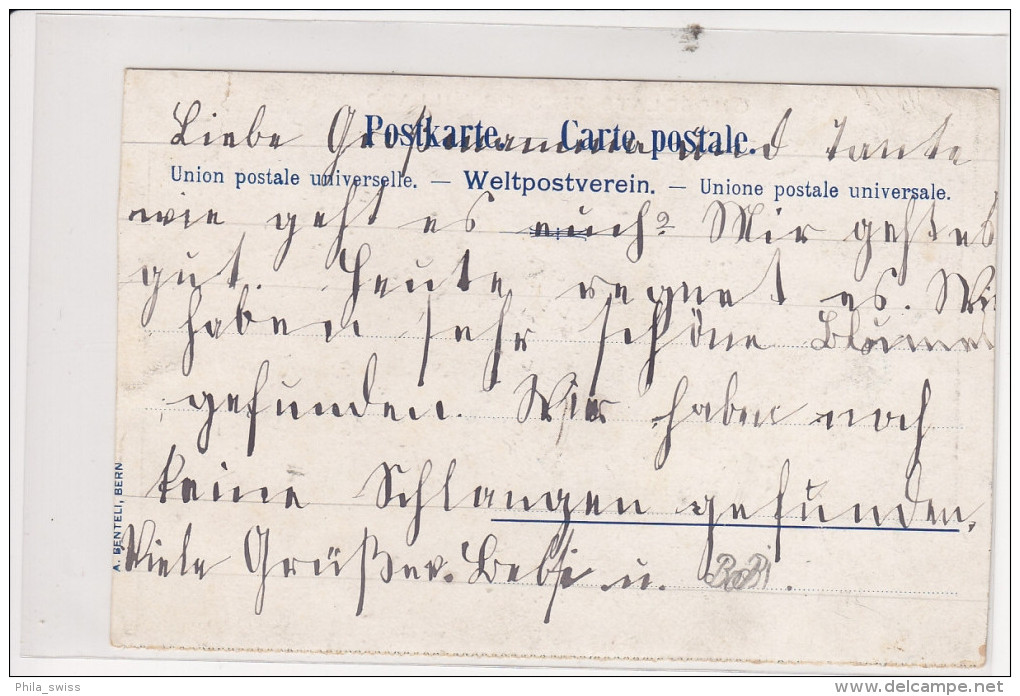 Liebe Großmamma und Tante
Postkarte. Carte postale.
Union postale universelle. — Weltpostverein. — Unione postale universale.
wie geht es euch? Mir geht es
gut. Heute regnet es. Wir
haben sehr schöne Blumen
gefunden. Wir haben noch
keine Schlangen gefunden.
Viele Grüße. Bebi u. BoBi.
A. BENTELI, BERN
Phila_swiss
www.delcampe.net